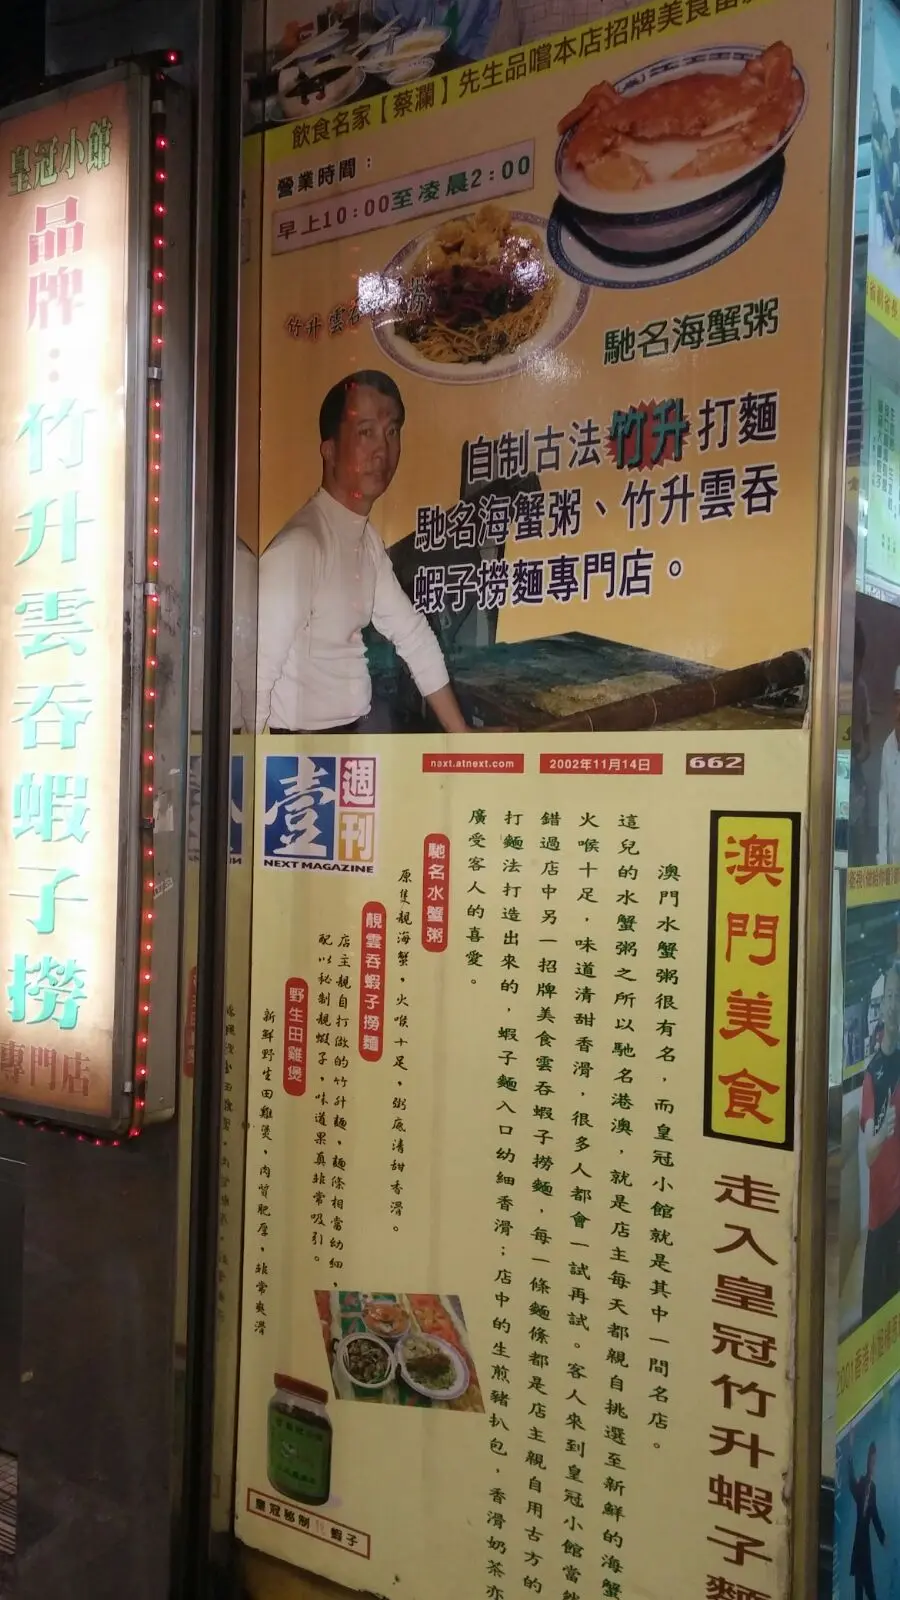 皇冠小館
品牌：竹升雲吞蝦子撈
專門店
飲食名家【蔡瀾】先生品嚐本店招牌美食
營業時間：
早上10:00至凌晨2:00
竹升雲吞
撈
馳名海蟹粥
自制古法竹升打麵
馳名海蟹粥、竹升雲吞
蝦子撈麵專門店。
壹週刊
NEXT MAGAZINE
next.atnext.com
2002年11月14日
662
澳門美食
走入皇冠竹升蝦子麵
澳門水蟹粥很有名，而皇冠小館就是其中一間名店。
這兒的水蟹粥之所以馳名港澳，就是店主每天都親自挑選至新鮮的海蟹
火喉十足，味道清甜香滑，很多人都會一試再試。客人來到皇冠小館當然
錯過店中另一招牌美食雲吞蝦子撈麵，每一條麵條都是店主親自用古方的
打麵法打造出來的，蝦子麵入口幼細香滑；店中的生煎豬扒包，香滑奶茶亦
廣受客人的喜愛。
馳名水蟹粥
原隻靚海蟹，火喉十足，粥底清甜香滑。
靚雲吞蝦子撈麵
店主親自打做的竹升麵，麵條相當幼細，
配以秘制靚蝦子，味道果真非常吸引。
野生田雞煲
新鮮野生田雞煲，肉質肥厚，非常爽滑
皇冠秘制
蝦子